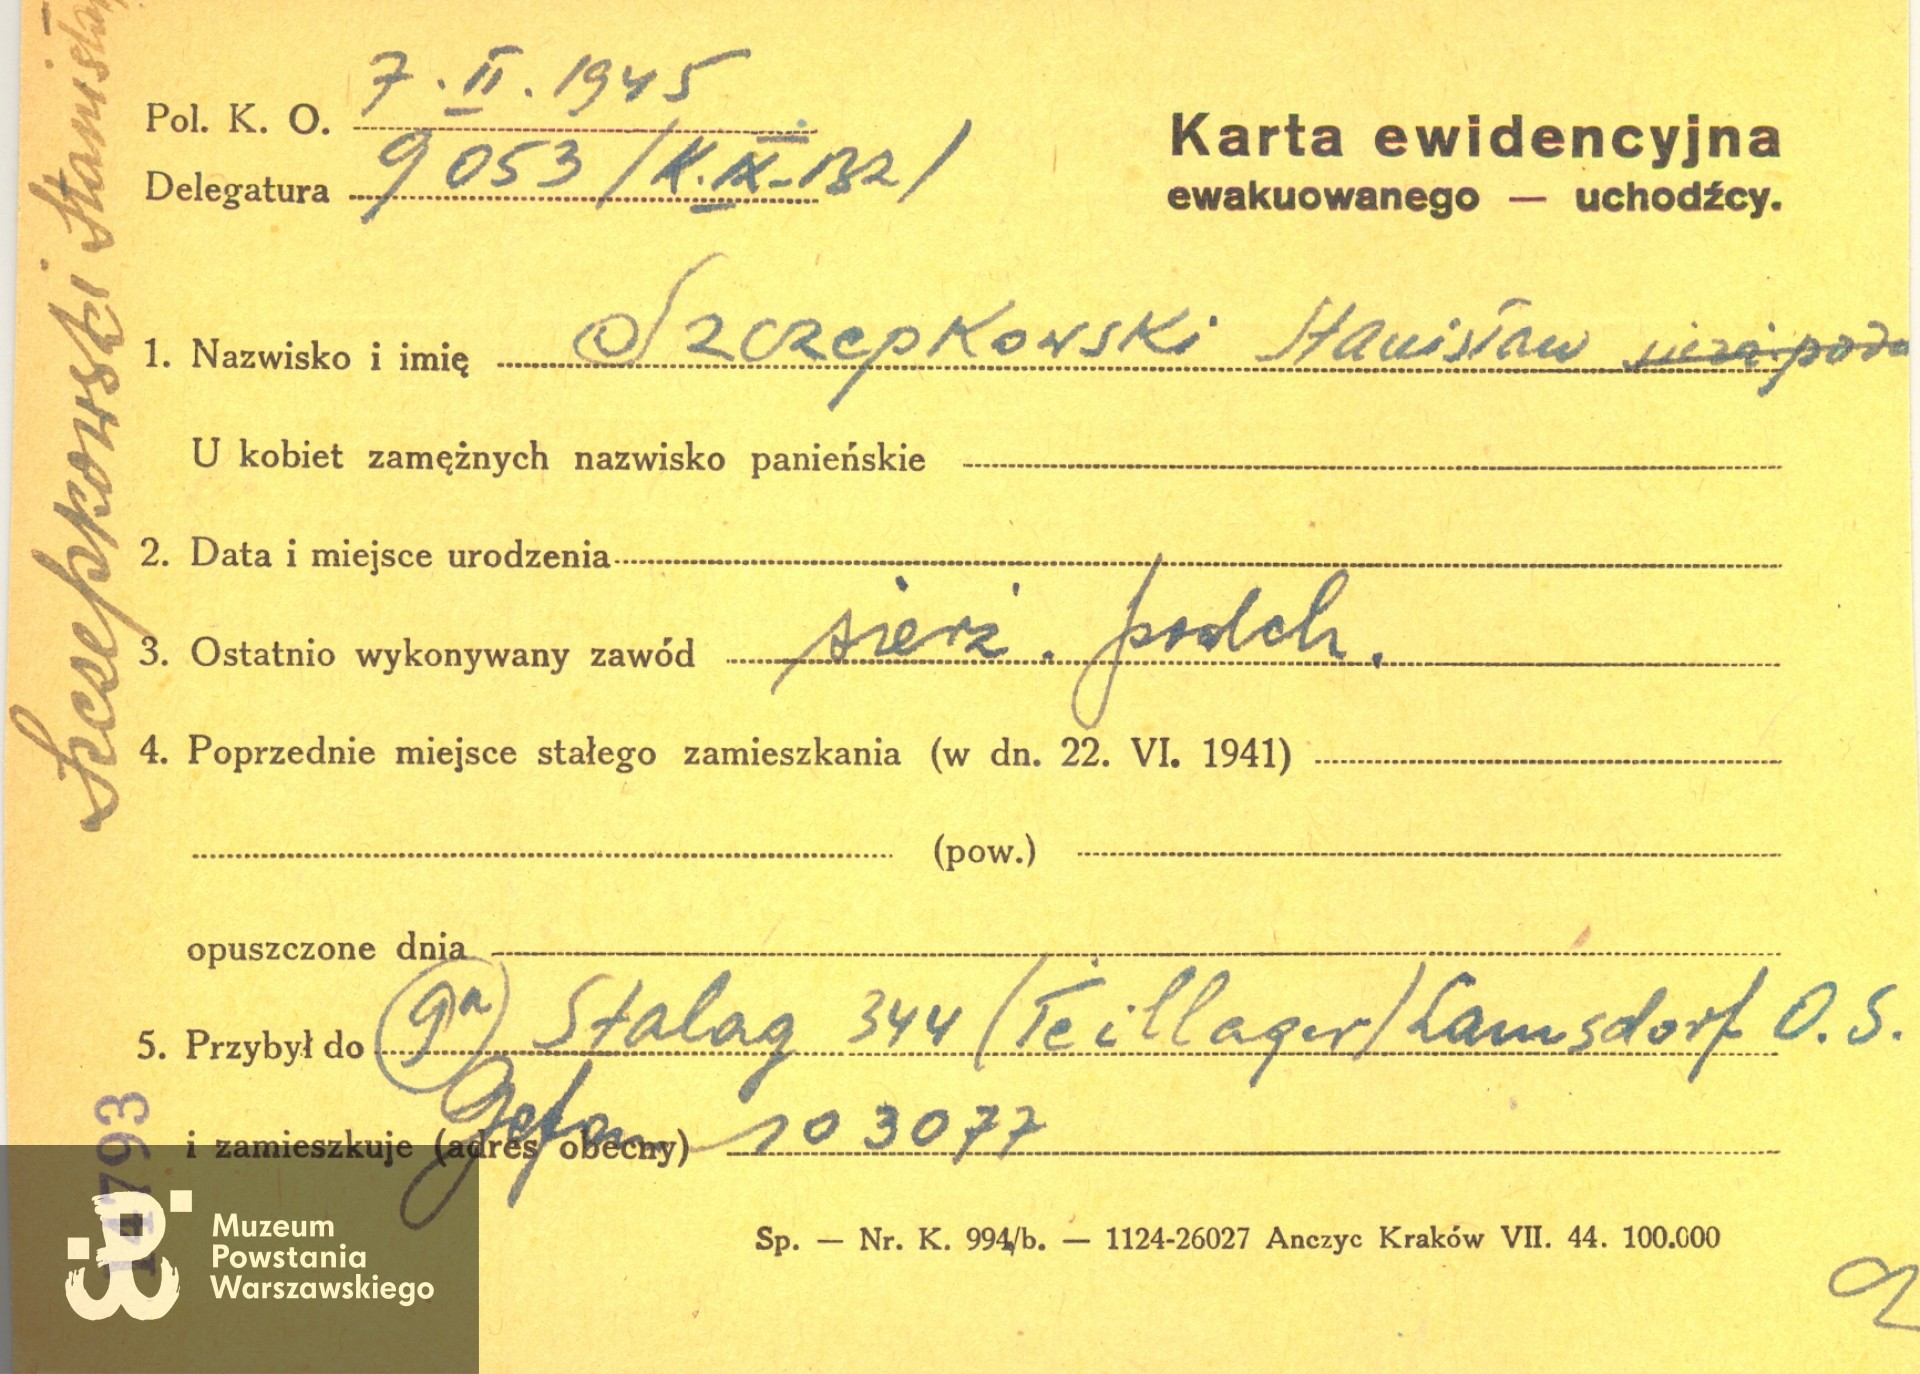 7. II. 1945
Pol. K. O.
Delegatura 9053 /K. IX-132/
Karta ewidencyjna
ewakuowanego — uchodźcy.
1. Nazwisko i imię Szczepkowski Stanisław
U kobiet zamężnych nazwisko panieńskie
2. Data i miejsce urodzenia
3. Ostatnio wykonywany zawód sierż. podch.
4. Poprzednie miejsce stałego zamieszkania (w dn. 22. VI. 1941)
(pow.)
opuszczone dnia
5. Przybył do 9a Stalag 344 (Teillager) Lamsdorf O. S.
i zamieszkuje (adres obecny) Gefan 103077
Sp. — Nr. K. 994/b. — 1124-26027 Anczyc Kraków VII. 44. 100.000
Szczepkowski Stanisław
Muzeum
Powstania
Warszawskiego